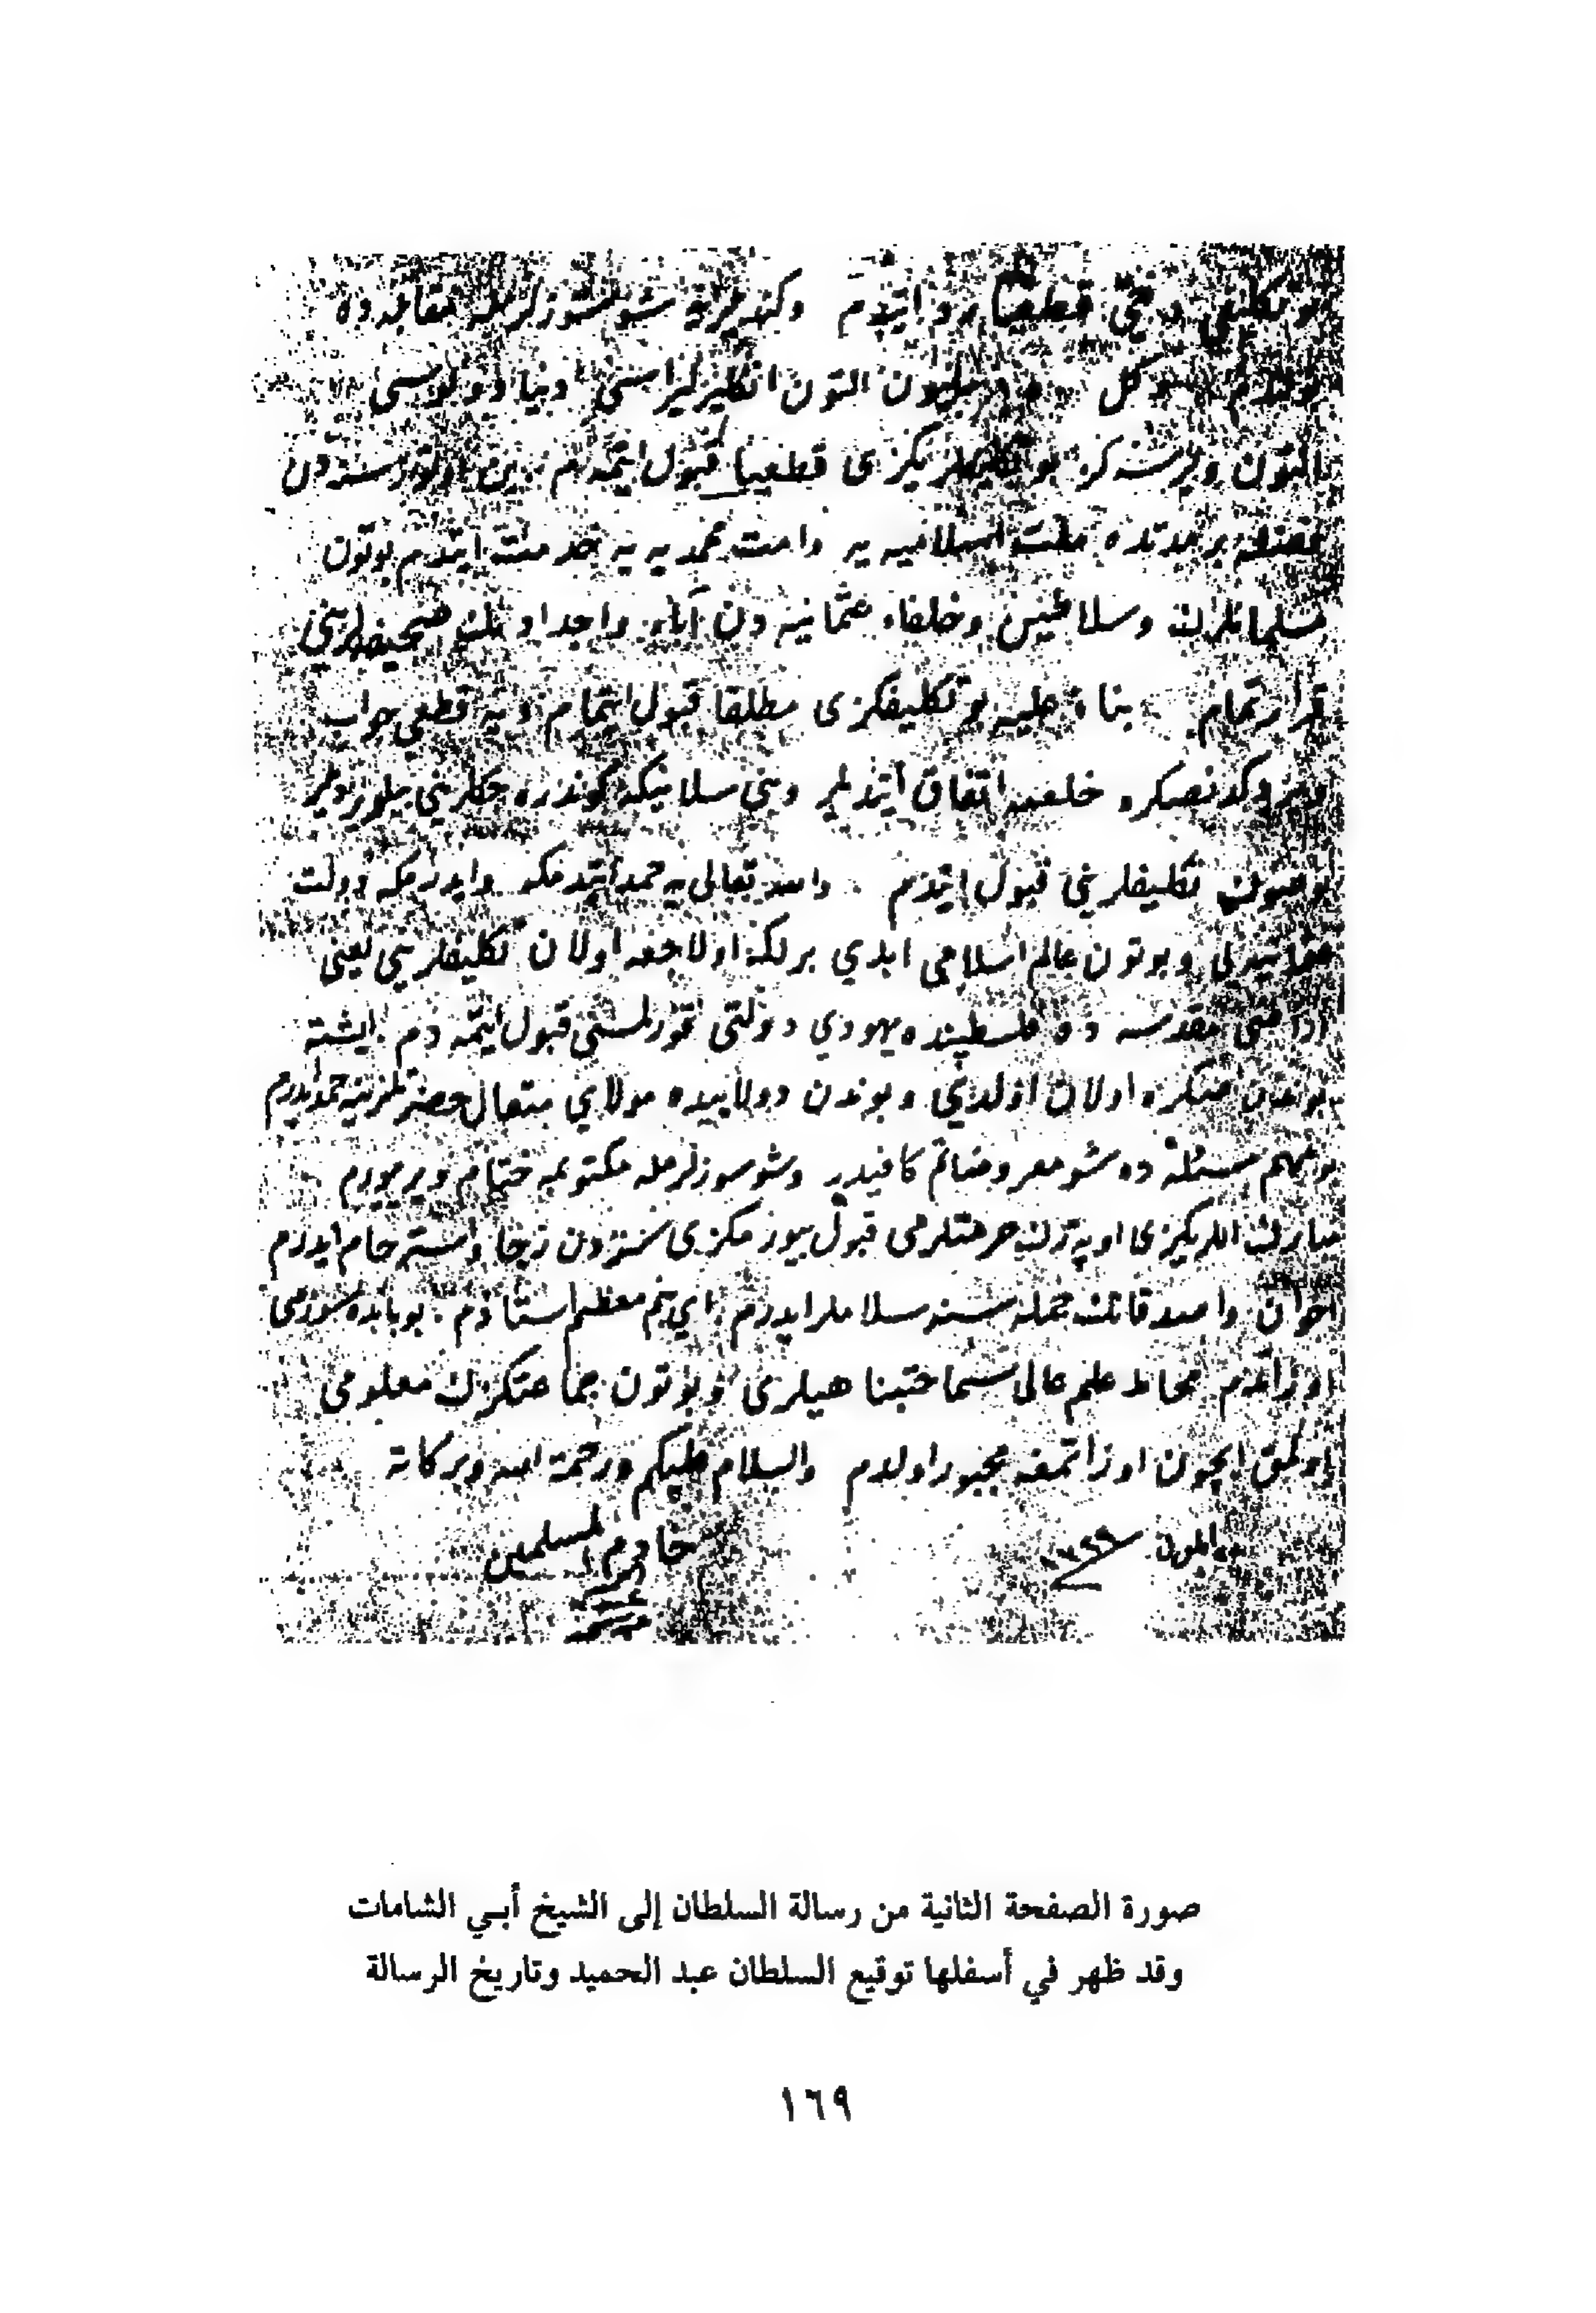 بو تكليفي دخي قطعيا رد ايتدم وكنديلرينه شو سوزلرمله مقابله ده
بولندم دكل مليون التون انكليز ليراسني دنيا دولوسي
التون ويرسه كز بو تكليفكزى قطعيا قبول ايتمه م بن اوتوز سنه دن
فضله بر مدتده ملت اسلاميه يه وامت محمديه يه خدمت ايتدم بوتون
مسلمانلرك وسلاطين وخلفاء عثمانيه دن آباء واجدادمك صحيفه لريني
قرارتمام بناء عليه بو تكليفكزى مطلقا قبول ايتمام ديه قطعي جواب
ويردكدنصكره خلعمه اتفاق ايتديلر وبني سلانيكه كوندره جكلريني بيلديرديلر
بو صوك تكليفلريني قبول ايتدم والله تعالى يه حمد ايتدمكه وايدرمكه دولت
عثمانيه يي وبوتون عالم اسلامى ابدي بر لكه اولاجغه اولان تكليفلريني يعني
اراضى مقدسه ده فلسطينده يهودي دولتى قورلمسني قبول ايتمه دم ايشته
بوندن صكره اولان اولدي وبوندن دولاييده مولاي متعال حضرتلرينه حمد ايدرم
بو مهم مسئله ده شو معروضاتم كافيدر وشو سوزلرمله مكتوبمه ختام ويريورم
مبارك اللريكزى اوپه رك حرمتلرمى قبول بيورمكزى سزدن رجا واسترحام ايدرم
اخوان واصدقانك جمله سنه سلاملر ايدرم اي بنم معظم استاذم بو بابده سوزمى
اوزاتدم محاط علم عالى سماحتپناهيلرى وبوتون جماعتكزك معلومى
اولمق ايچون اوزاتمغه مجبور اولدم والسلام عليكم ورحمة الله وبركاته
خادم المسلمين
صورة الصفحة الثانية من رسالة السلطان إلى الشيخ أبي الشامات
وقد ظهر في أسفلها توقيع السلطان عبد الحميد وتاريخ الرسالة
١٦٩